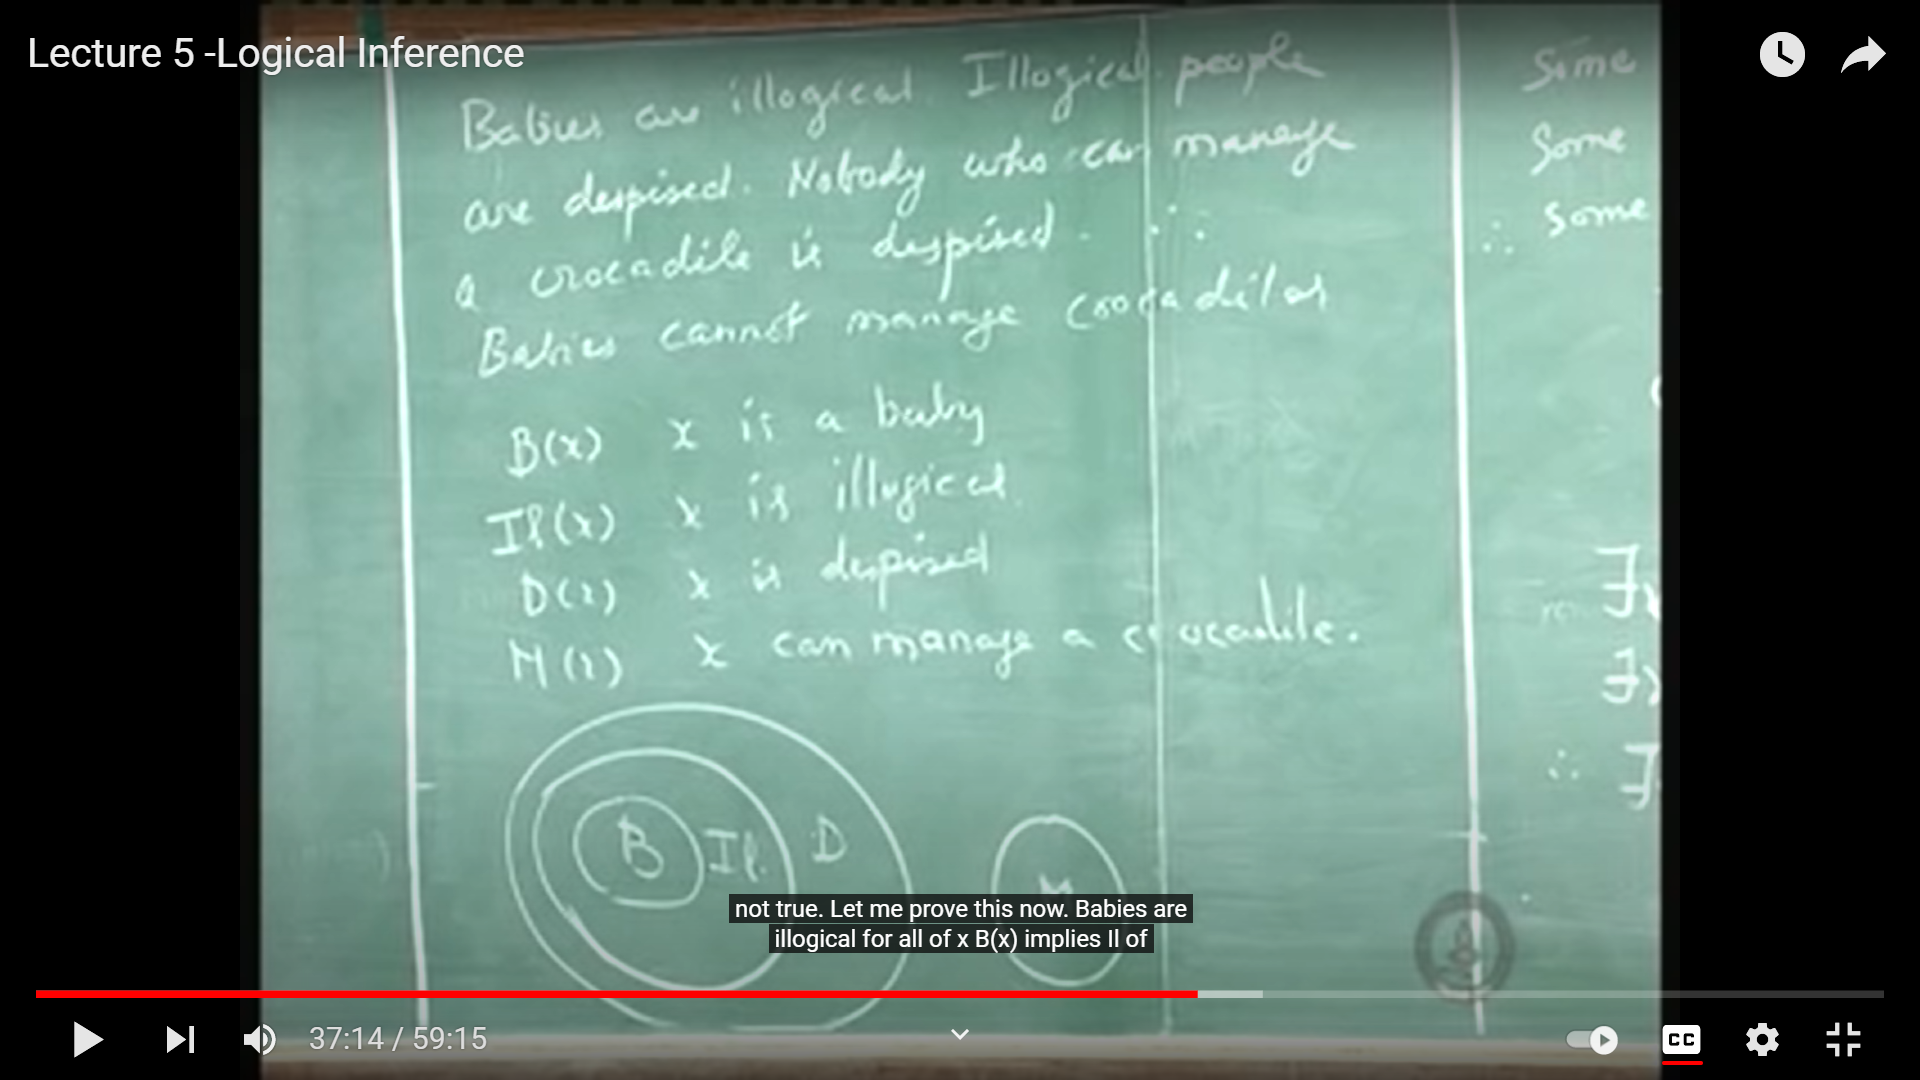 Lecture 5 -Logical Inference
Babies are illogical. Illogical people
are despised. Nobody who can manage
a crocadile is despised. ∴
Babies cannot manage crocadiles
B(x) x is a baby
Il(x) x is illogical
D(x) x is despised
M(x) x can manage a crocadile.
B Il. D M
Some
Some
∴ Some
∃x
∃x
∴ ∃
not true. Let me prove this now. Babies are
illogical for all of x B(x) implies Il of
37:14 / 59:15
CC